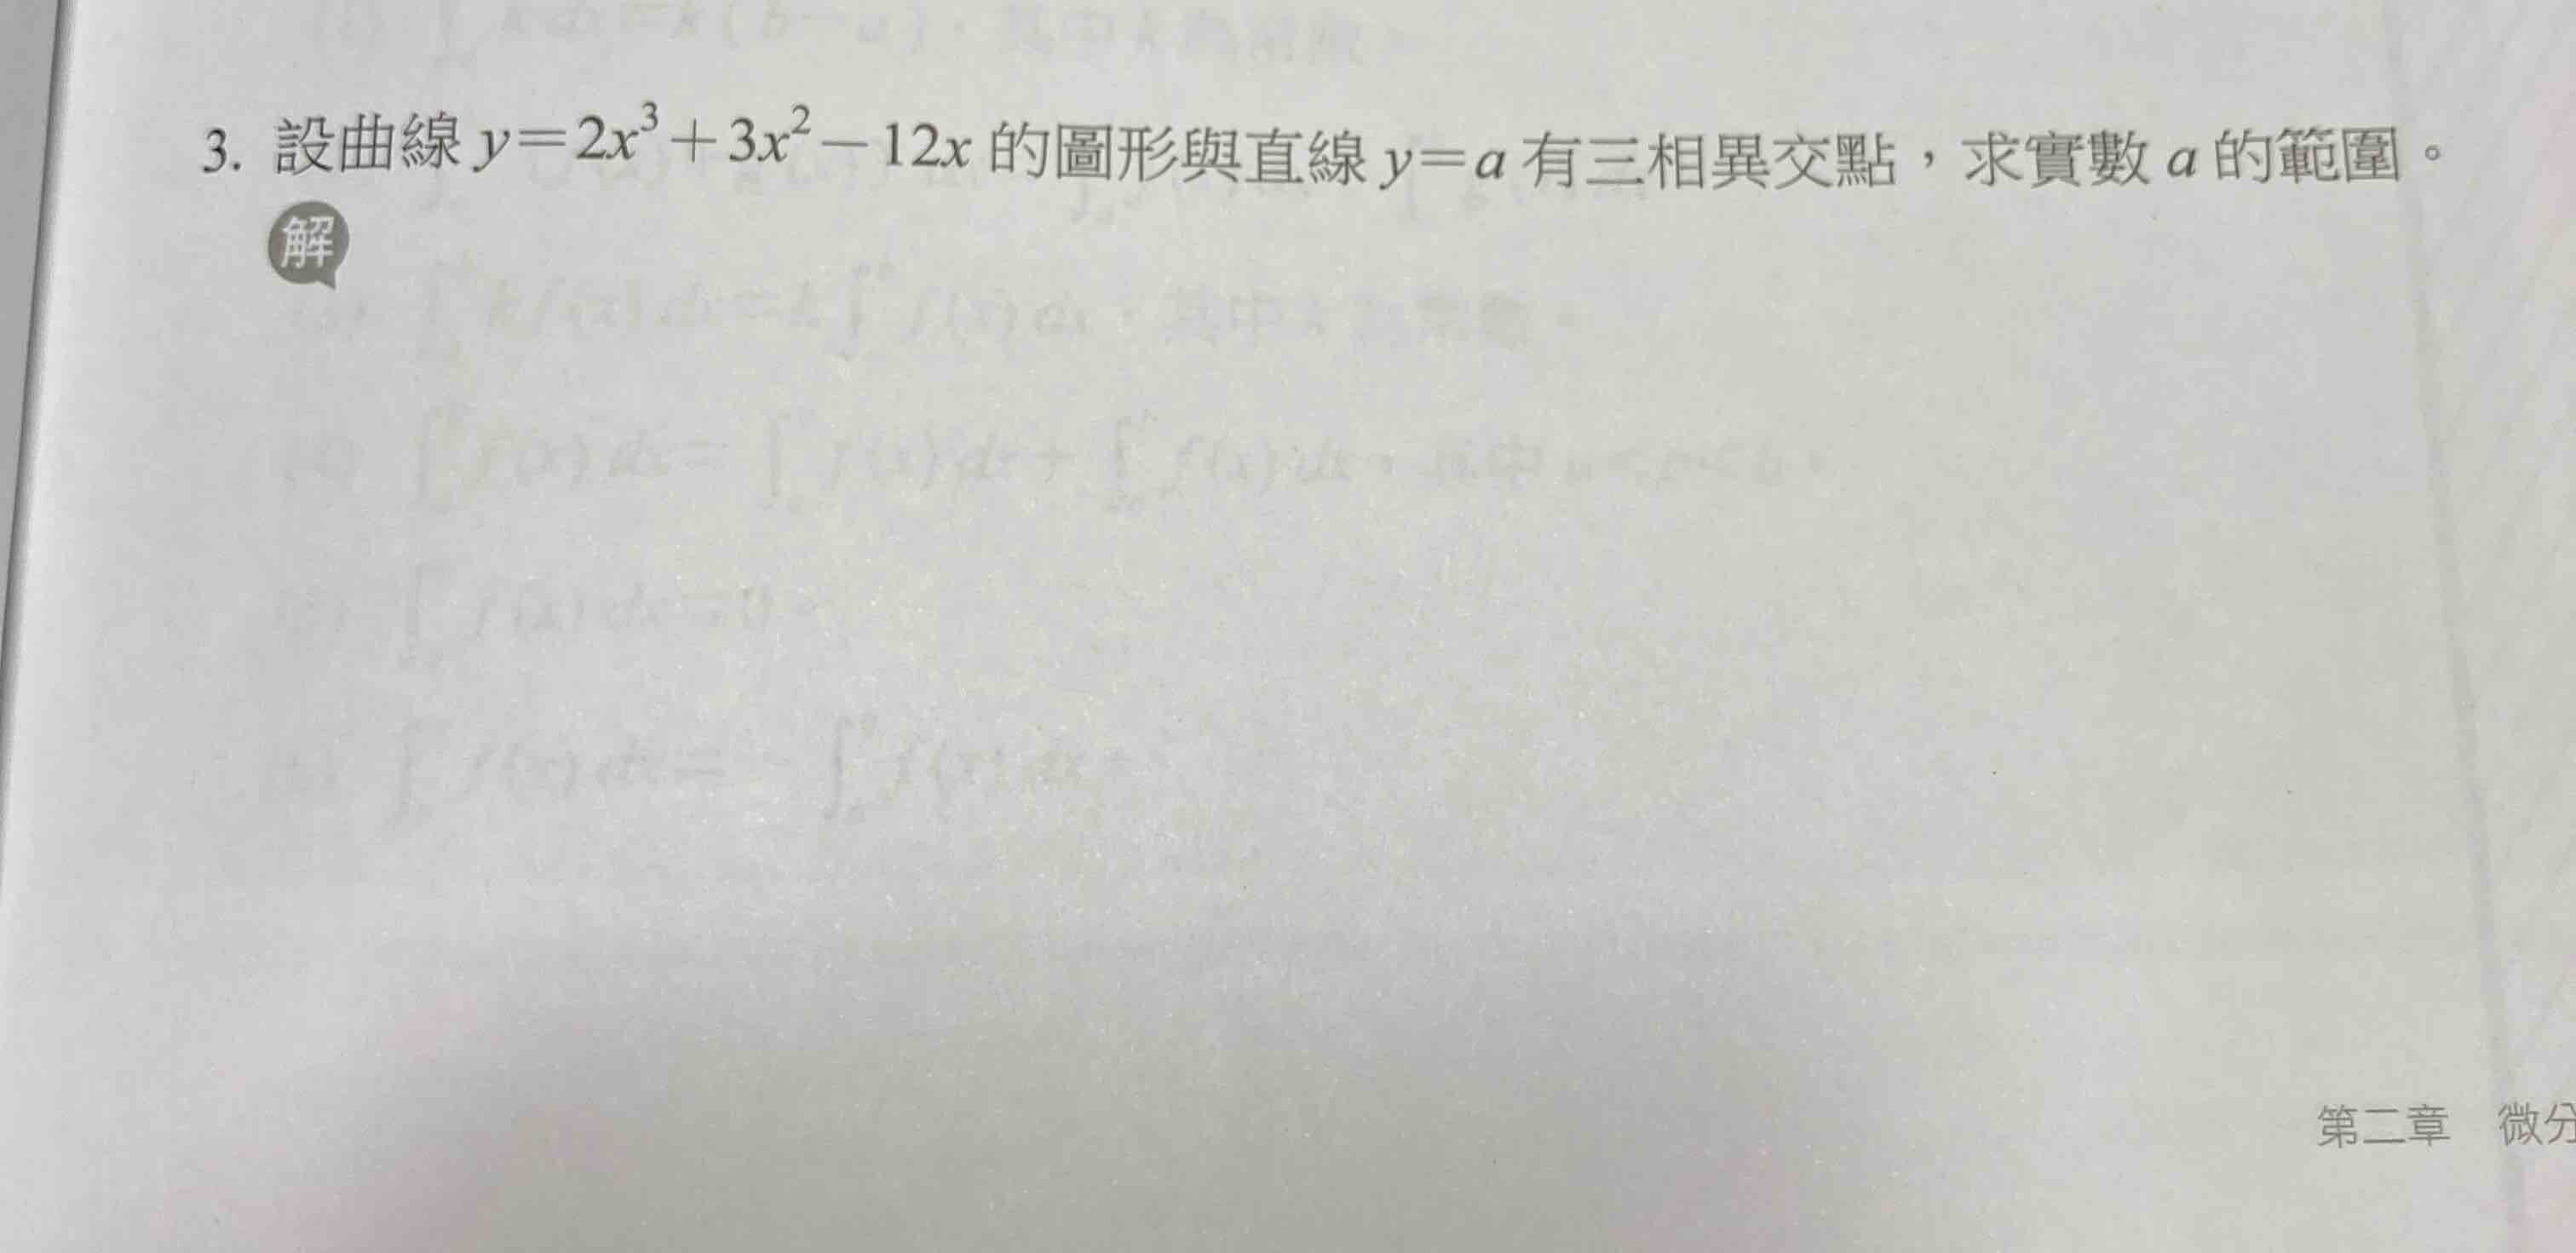 3. 設曲線 y=2x³+3x²-12x 的圖形與直線 y=a 有三相異交點，求實數 a 的範圍。
解
第二章 微分